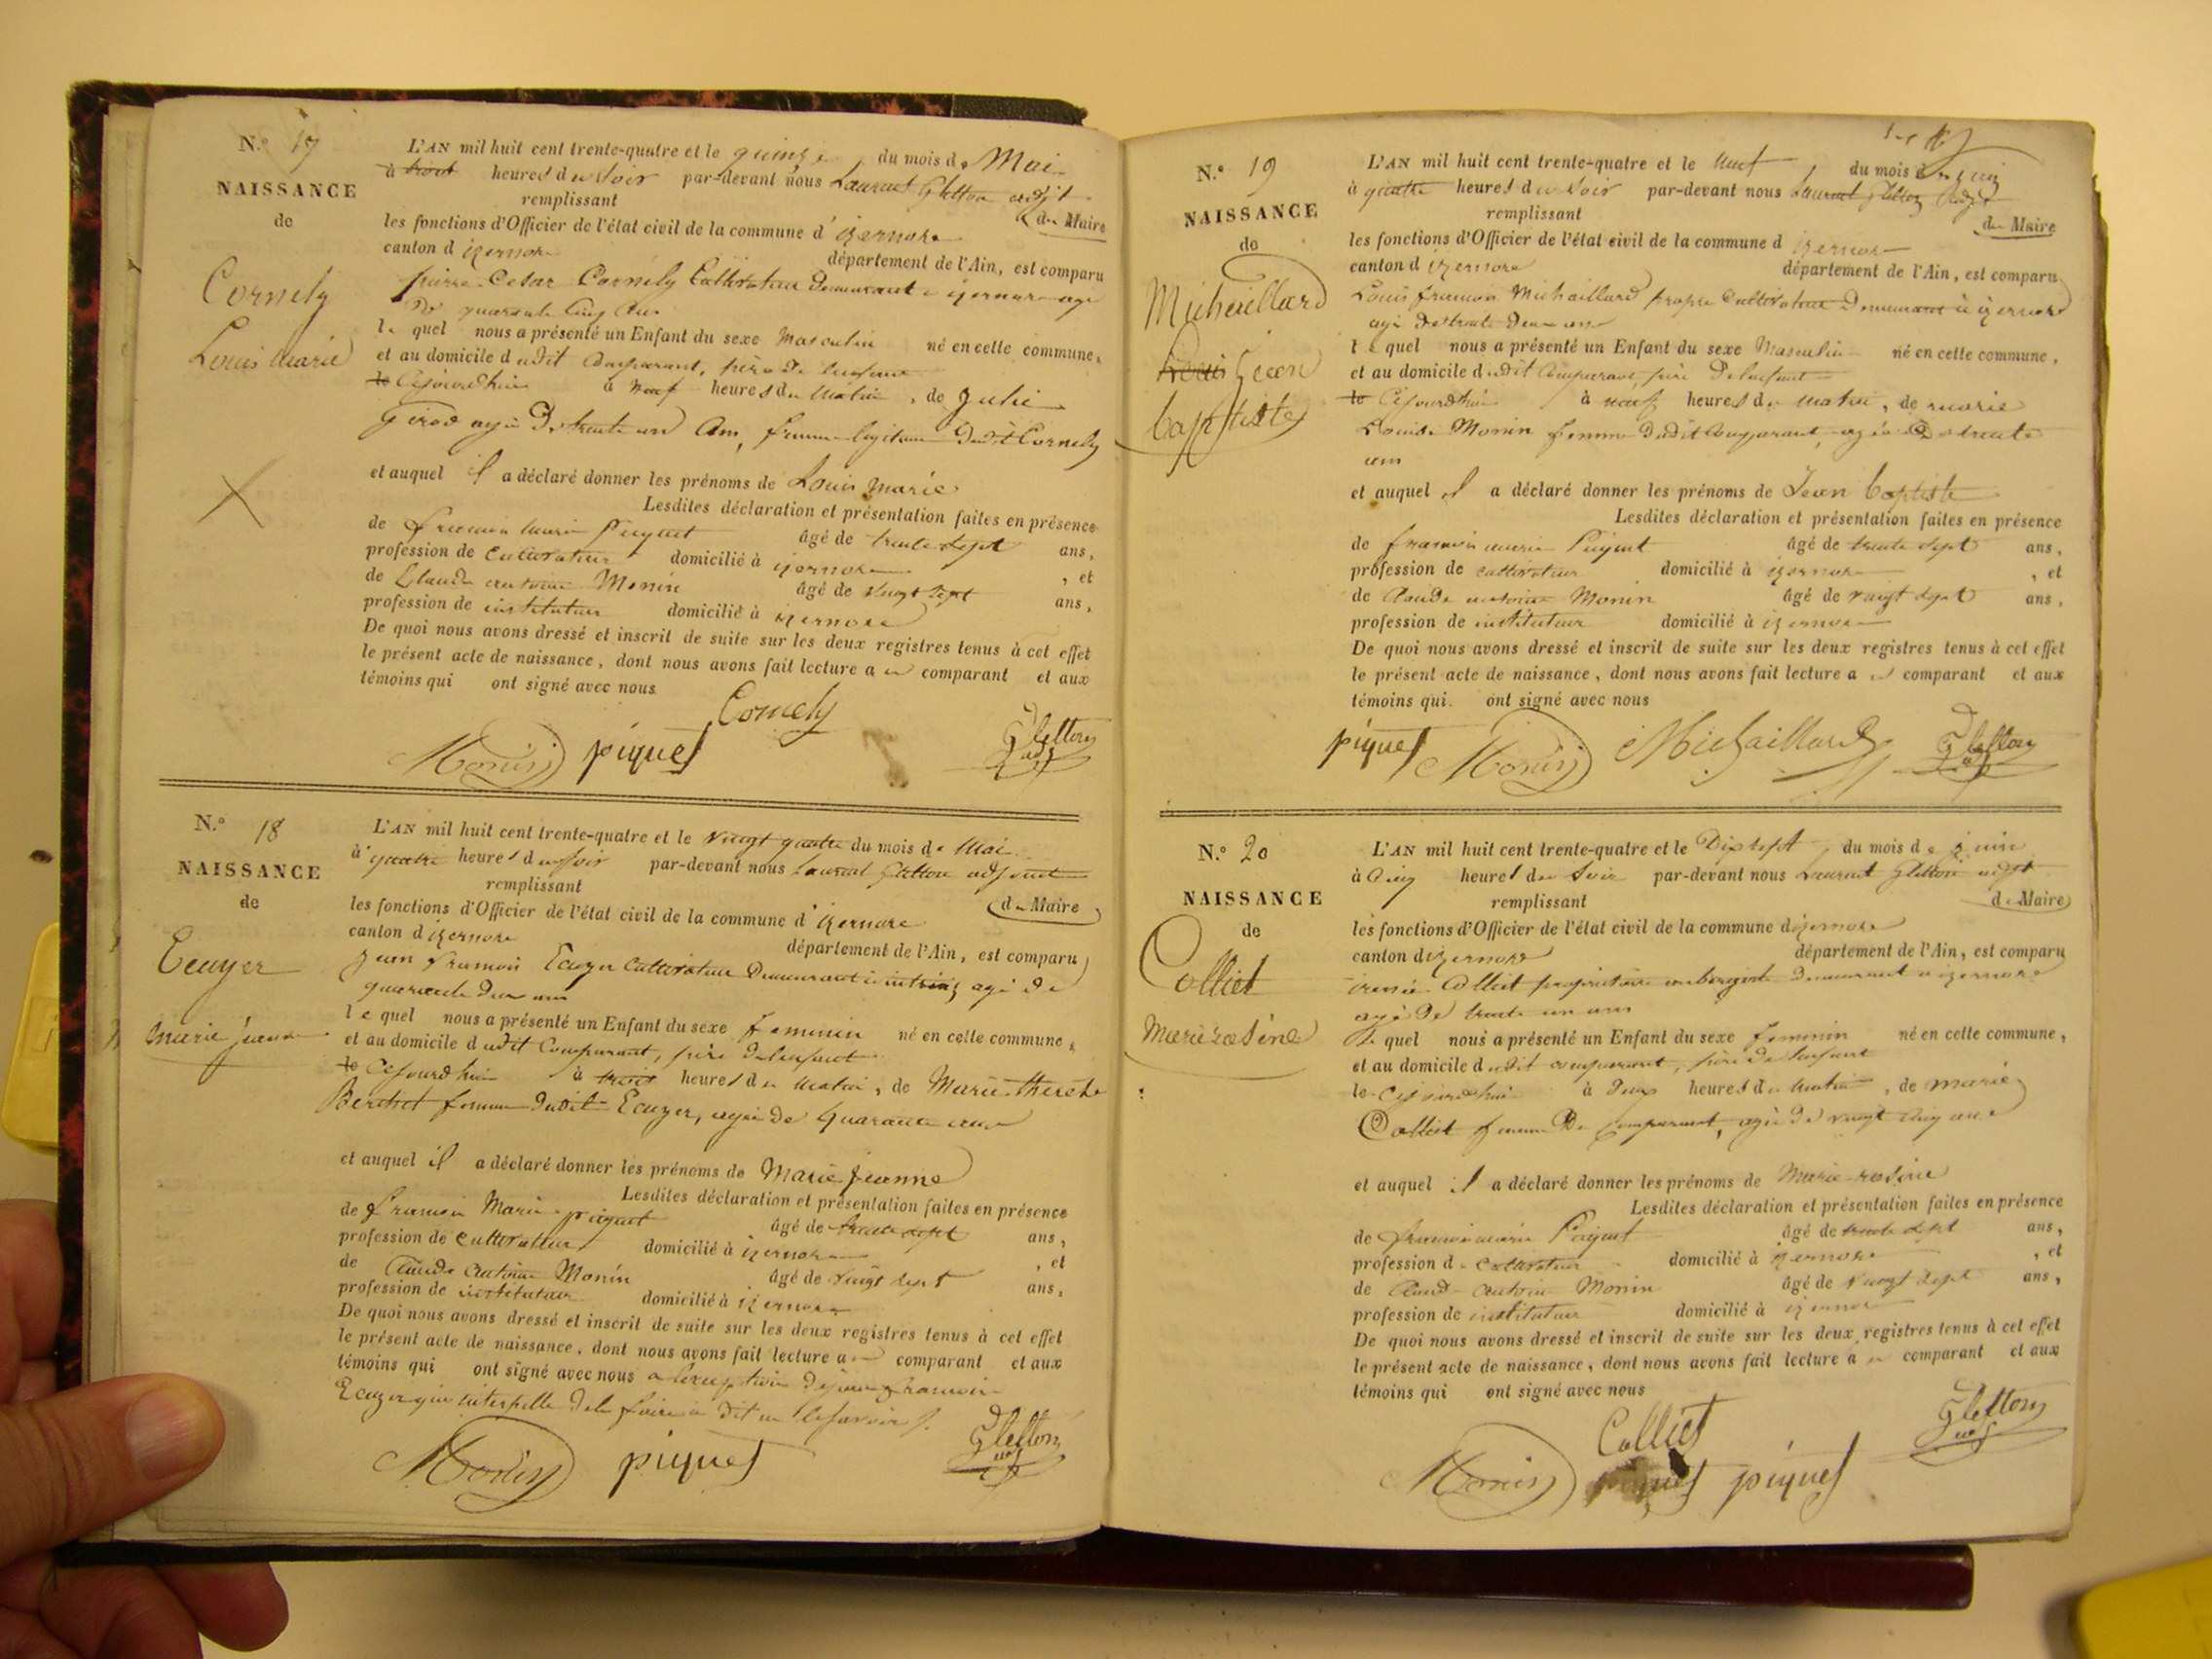 N.º 17
NAISSANCE
de
Cornely
Louis Marie
L'AN mil huit cent trente-quatre et le quinze du mois de Mai
à trois heures du soir par-devant nous Laurent Gletton adjt
remplissant du Maire
les fonctions d'Officier de l'état civil de la commune d'izernore
canton d izernore département de l'Ain, est comparu
pierre Cesar Cornely Cultivateur demeurant a izernore age
de quarante cinq ans
le quel nous a présenté un Enfant du sexe Masculin né en cette commune,
et au domicile dudit comparant, père de lenfant
le Cejourdhui à neuf heures du matin, de Julie
Girod agée de trente un ans, femme legitime dudit Cornely
et auquel il a déclaré donner les prénoms de Louis Marie
Lesdites déclaration et présentation faites en présence
de francois marie Piquet âgé de trente sept ans,
profession de cultivateur domicilié à izernore , et
de Claude antoine Monin âgé de vingt sept ans,
profession de instituteur domicilié à izernore
De quoi nous avons dressé et inscrit de suite sur les deux registres tenus à cet effet
le présent acte de naissance, dont nous avons fait lecture a comparant et aux
témoins qui ont signé avec nous
Cornely
Monin piquet Gletton adj
N.º 18
NAISSANCE
de
Ecuyer
Marie jeanne
L'AN mil huit cent trente-quatre et le vingt quatre du mois de Mai
à quatre heures du soir par-devant nous Laurent Gletton adjoint
remplissant du Maire
les fonctions d'Officier de l'état civil de la commune d'izernore
canton d izernore département de l'Ain, est comparu
jean francois Ecuyer Cultivateur demeurant a agé de
quarante deux ans
le quel nous a présenté un Enfant du sexe feminin né en cette commune,
et au domicile dudit Comparant, père de lenfant
le Cejourdhui à trois heures du matin, de Marie therese
Berthet femme dudit Ecuyer, agée de quarante ans
et auquel il a déclaré donner les prénoms de Marie jeanne
Lesdites déclaration et présentation faites en présence
de francois Marie piquet âgé de trente sept ans,
profession de cultivateur domicilié à izernore , et
de Claude antoine Monin âgé de vingt sept ans,
profession de instituteur domicilié à izernore
De quoi nous avons dressé et inscrit de suite sur les deux registres tenus à cet effet
le présent acte de naissance, dont nous avons fait lecture a comparant et aux
témoins qui ont signé avec nous a lexception de jean francois
Ecuyer qui interpellé de le faire a dit ne le savoir
Monin piquet Gletton adj
N.º 19
NAISSANCE
de
Michaillard
Louis Jean
baptiste
L'AN mil huit cent trente-quatre et le neuf du mois de juin
à quatre heures du soir par-devant nous Laurent Gletton adjt
remplissant du Maire
les fonctions d'Officier de l'état civil de la commune d izernore
canton d izernore département de l'Ain, est comparu
Louis francois Michaillard propre Cultivateur demeurant a izernore
agé de trente deux ans
le quel nous a présenté un Enfant du sexe Masculin né en cette commune,
et au domicile dudit Comparant, père de lenfant
le Cejourdhui à neuf heures du matin, de marie
Louise Monin femme dudit Comparant, agée de trente
ans
et auquel il a déclaré donner les prénoms de Jean baptiste
Lesdites déclaration et présentation faites en présence
de francois marie Piquet âgé de trente sept ans,
profession de cultivateur domicilié à izernore , et
de Claude antoine Monin âgé de vingt sept ans,
profession de instituteur domicilié à izernore
De quoi nous avons dressé et inscrit de suite sur les deux registres tenus à cet effet
le présent acte de naissance, dont nous avons fait lecture a comparant et aux
témoins qui ont signé avec nous
piquet Monin Michaillard Gletton adj
N.º 20
NAISSANCE
de
Colliet
Marie rosine
L'AN mil huit cent trente-quatre et le Dix sept du mois de juin
à cinq heures du soir par-devant nous Laurent Gletton adjt
remplissant du Maire
les fonctions d'Officier de l'état civil de la commune d izernore
canton d izernore département de l'Ain, est comparu
irenée Colliet propriétaire aubergiste demeurant a izernore
agé de trente un ans
le quel nous a présenté un Enfant du sexe feminin né en cette commune,
et au domicile dudit comparant, père de lenfant
le Cejourdhui à deux heures du matin, de marie
Colliet femme du comparant, agée de vingt cinq ans
et auquel il a déclaré donner les prénoms de Marie rosine
Lesdites déclaration et présentation faites en présence
de francois marie Piquet âgé de trente sept ans,
profession de cultivateur domicilié à izernore , et
de Claude antoine Monin âgé de vingt sept ans,
profession de instituteur domicilié à izernore
De quoi nous avons dressé et inscrit de suite sur les deux registres tenus à cet effet
le présent acte de naissance, dont nous avons fait lecture a comparant et aux
témoins qui ont signé avec nous
Colliet Gletton adj
Monin piquet piquet